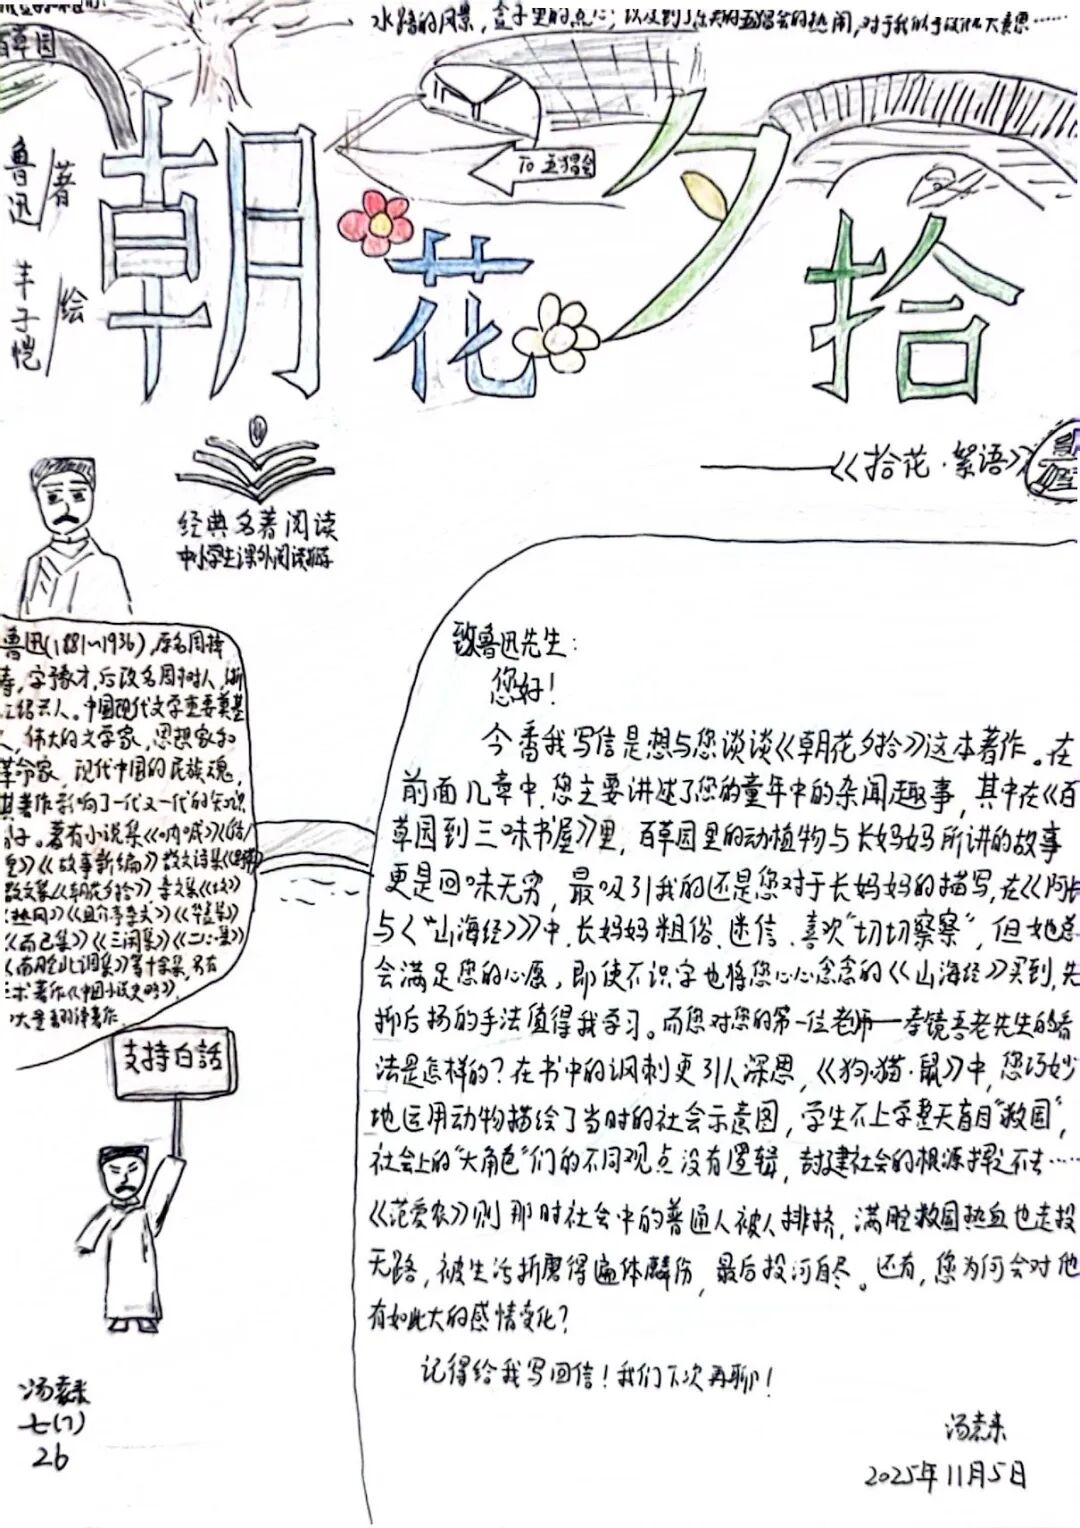 水路的风景，盒子里的点心，以及到了东关的五猖会的热闹，对于我似乎都没什么大意思……
百草园
鲁迅 著
丰子恺 绘
To 五猖会
朝花夕拾
——《拾花·絮语》
经典名著阅读
中小学生课外阅读
鲁迅(1881～1936)，原名周樟
寿，字豫才，后改名周树人，浙
江绍兴人。中国现代文学重要奠基
人，伟大的文学家，思想家和
革命家，现代中国的民族魂，
其著作影响了一代又一代的知识
分子。著有小说集《呐喊》《彷
徨》《故事新编》散文诗集《野草》
散文集《朝花夕拾》，杂文集《坟》
《热风》《且介亭杂文》《华盖集》
《而已集》《三闲集》《二心集》
《南腔北调集》等十余集，另有
学术著作《中国小说史略》，
大量翻译著作
支持白話
汤袁来
七(7)
26
致鲁迅先生：
您好！
今番我写信是想与您谈谈《朝花夕拾》这本著作。在
前面几章中，您主要讲述了您的童年中的杂闻趣事，其中在《百
草园到三味书屋》里，百草园里的动植物与长妈妈所讲的故事
更是回味无穷，最吸引我的还是您对于长妈妈的描写，在《阿长
与《山海经》》中，长妈妈粗俗、迷信、喜欢“切切察察”，但她总
会满足您的心愿，即使不识字也将您心心念念的《山海经》买到，先
抑后扬的手法值得我学习。而您对您的第一位老师——寿镜吾老先生的看
法是怎样的？在书中的讽刺更引人深思，《狗·猫·鼠》中，您巧妙
地运用动物描绘了当时的社会示意图，学生不上学整天盲目“救国”，
社会上的“大角色”们的不同观点没有逻辑，封建社会的根源挥之不去……
《范爱农》则那时社会中的普通人被人排挤，满腔救国热血也走投
无路，被生活折磨得遍体鳞伤，最后投河自尽。还有，您为何会对他
有如此大的感情变化？
记得给我写回信！我们下次再聊！
汤袁来
2025年11月5日